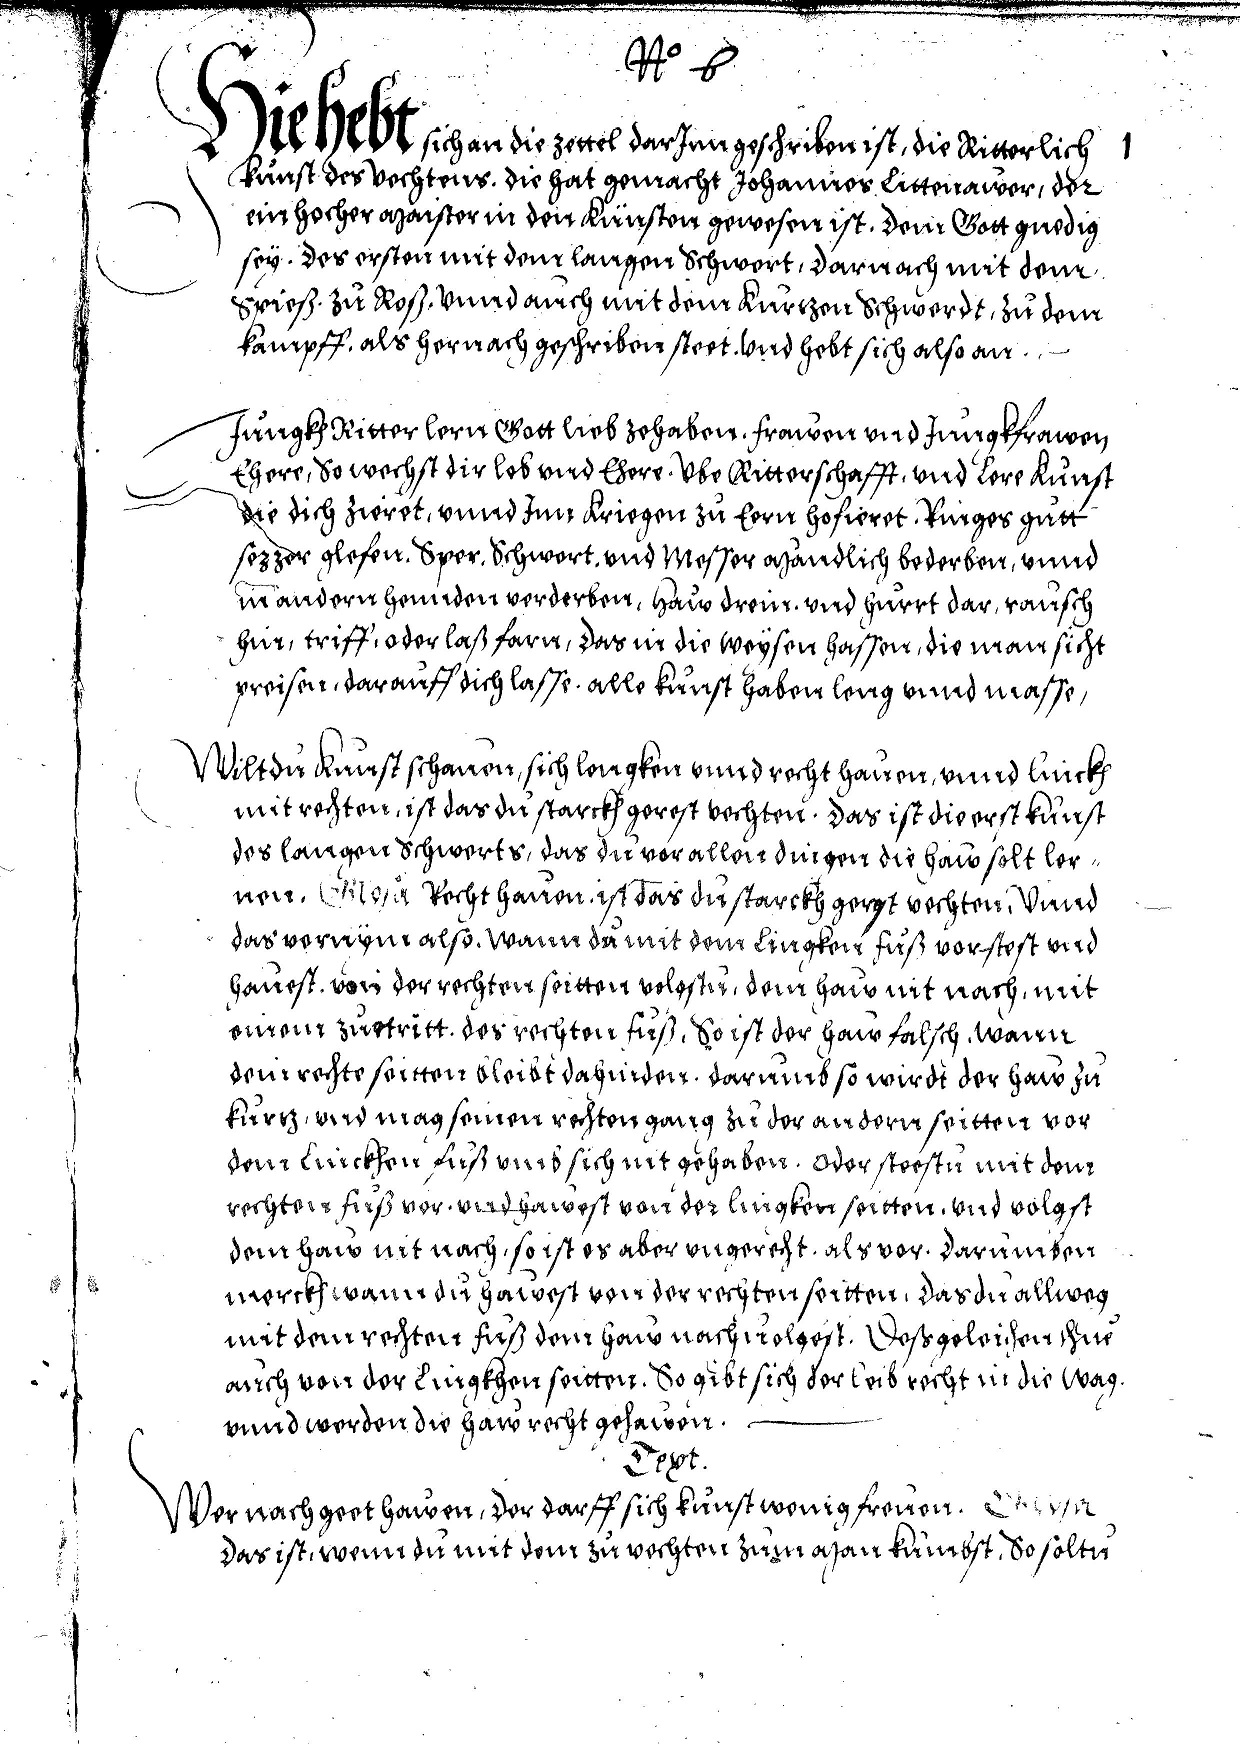 No 6
Hie hebt sich an die zettel darJnn geschriben ist, die Ritterlich 1
kunst des vechtens. die hat gemacht Johannes Littenawer, der
ein hocher Maister in den Künsten gewesen ist. dem Gott gnedig
seÿ. Des ersten mit dem langen Schwert, darnach mit dem
Spieß. zu Roß. vnnd auch mit dem Kurtzen Schwerdt, zu dem
kampff. als hernach geschriben steet. vnd hebt sich also an.
Jungkh Ritter lern Gott lieb zehaben. frawen vnd Jungkfrawen
Ehere, So wechst dir lob vnd Ehere. Vbe Ritterschafft, vnd Lere Kunst
die dich zieret, vnnd Jnn Kriegen zu Eern hofieret. Ringes gutt
fezzer glefen. Sper. Schwert. vnd Messer Mandlich bederben, vnnd
in andern hennden verderben, Haw drein. vnd hurrt dar, rausch
hin, triff, oder laß farn, Das in die weÿsen hassen, die man sicht
preisen, darauff dich lasse. alle kunst haben leng vnnd masse,
Wilt du Kunst schauen, sich lengken vnnd recht hauen, vnnd linckh
mit rechten, ist das du starckh gerest vechten. Das ist die erst kunst
des langen Schwerts, das du vor allen dingen die haw solt ler-
nen. Glosa Recht hauen. ist das du starckh gergt vechten, Vnnd
das vernÿm also. Wann du mit dem Lingken fuß vorstest vnd
hauest. von der rechten seitten volgstu, dem haw nit nach, mit
einem zuetritt. des rechten fuß. So ist der haw falsch. Wann
dein rechte seitten bleibt dahinden. darumb so wirdt der haw zu
kurtz, vnd mag seinen rechten gang zu der andern seitten vor
dem Linckhen fuß vmb sich nit gehaben. Oder steestu mit dem
rechten fuß vor. vnd hawest von der lingken seitten. vnd volgst
dem haw nit nach, so ist es aber vngerecht. als vor. Darumben
merckh wann du hawest von der rechten seitten, Das du allweg
mit dem rechten fuß dem haw nachuolgest. Desgeleichen thue
auch von der Lingkhen seitten. So gibt sich der Leib recht in die wag.
vnnd werden die haw recht gehawen.
Text.
Wer nach geet hawen, der darff sich kunst wenig freuen. Glosa
Das ist, wenn du mit dem zu vechten zum Man kumbst. So soltu